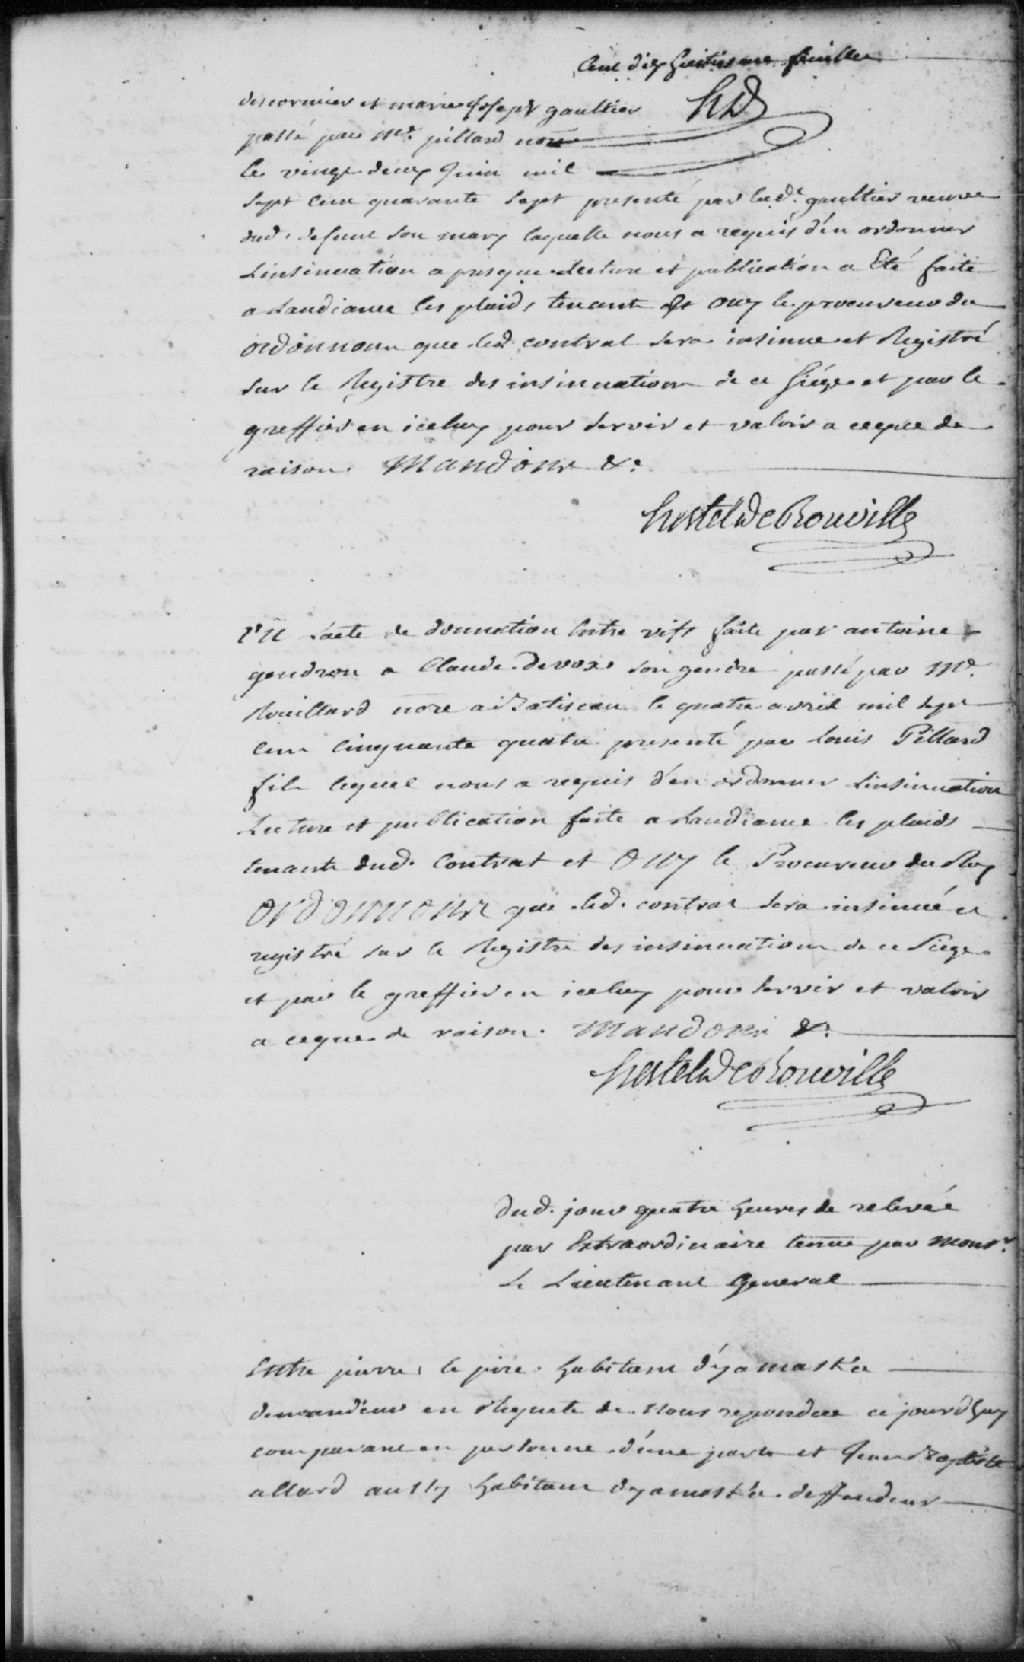 Cent dix huitieme feuillet
descormier et marie Joseph gaultier HD
passé par Mr. pillard nore
le vingt deux Juin mil
sept cent quarante sept presenté par lad. gaultier veuve
dud. defunt son mary laquelle nous a requis d'en ordonner
Linsinuation apresque lecture et publication a Eté faite
a Laudiance les plaids tenant et ouy le procureur du
ordonnons que led. contrat sera insinue et Registré
sur le Registre des insinuations de ce siége et par le
greffier en iceluy pour servir et valoir a ceque de
raison. Mandons &c.
hertel De Rouville
VU Lacte de donnation Entre vifs faite par antoine
gendron a Claude Devaux son gendre passé par Mr.
Rouillard nore a Batiscan le quatre avril mil sept
cent cinquante quatre presenté par louis Pillard
fils lequel nous a requis d'en ordonner Linsinuation
Lecture et publication faite a Laudiance les plaids
tenants dud. Contrat et Ouy le Procureur du Roy
Ordonnons que led. contrat sera insinué et
registré sur le Registre des insinuations de ce Siege
et par le greffier en iceluy pour servir et valoir
a ceque de raison. Mandons &c.
hertel De Rouville
Dud. jour quatre heures de relevée
par Extraordinaire tenue par Monsr.
Le Lieutenant General
Entre pierre le pire habitant d'yamaska
demandeur en Requete de Nous repondue ce jourdhuy
comparant en personne d'une part et Jean Baptiste
allard aussy habitant d'yamaska deffendeur